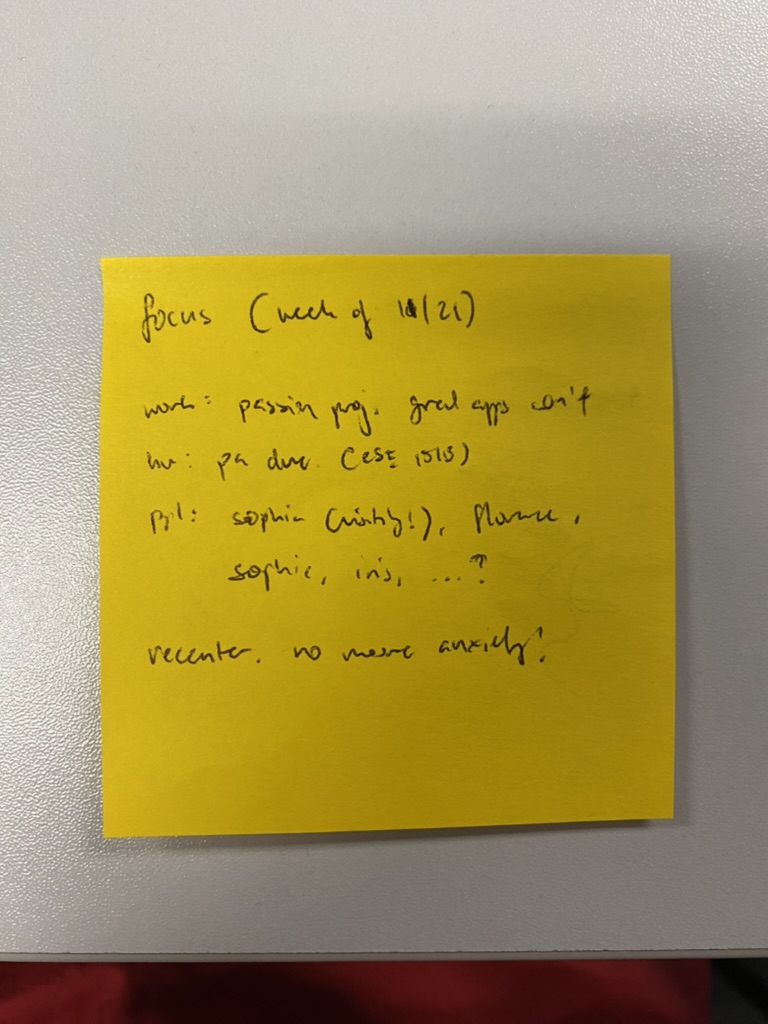 focus (week of 10/21)
work: passion proj. grad apps con't
hw: pa due (ESE 1515)
ppl: sophia (visiting!), florence,
sophie, iris, ...?
recenter. no more anxiety!